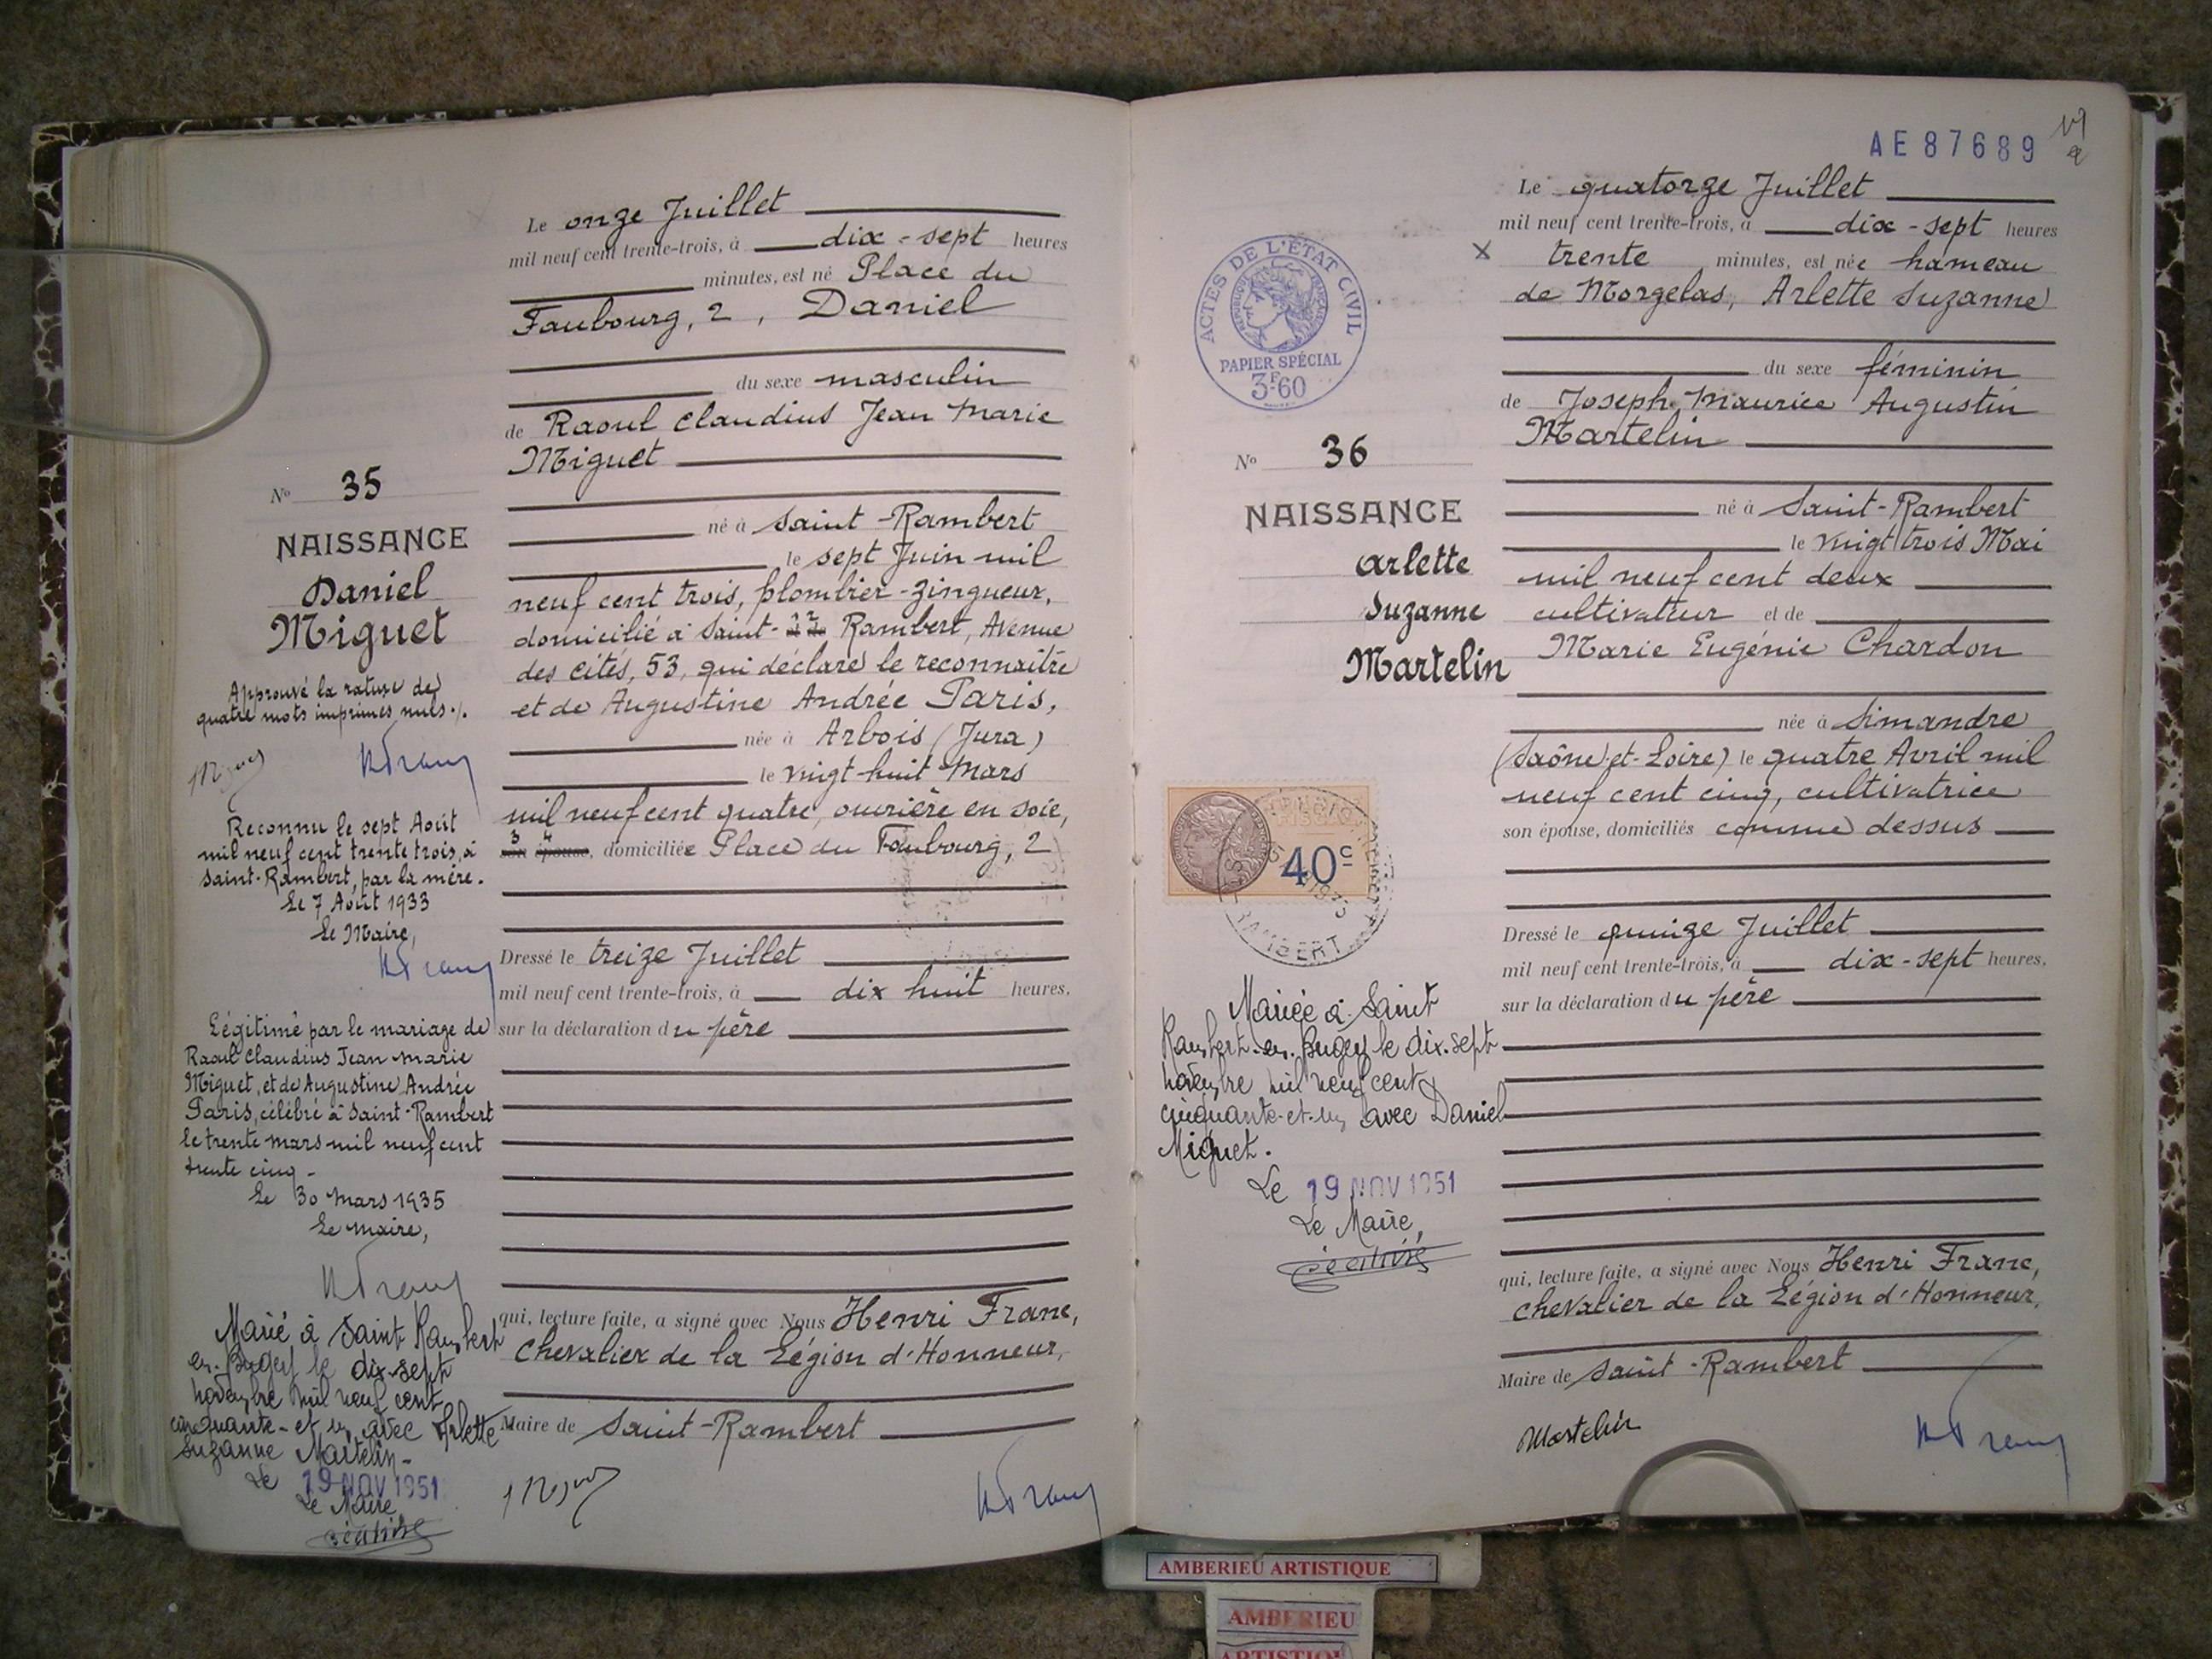 Le onze Juillet
mil neuf cent trente-trois, à dix-sept heures
minutes, est né Place du
Faubourg, 2, Daniel
du sexe masculin
de Raoul Claudius Jean Marie
Miguet
né à Saint-Rambert
le sept Juin mil
neuf cent trois, plombier-zingueur,
domicilié à Saint- Rambert, Avenue
des cités, 53, qui déclare le reconnaître
et de Augustine Andrée Paris,
née à Arbois (Jura)
le vingt-huit Mars
mil neuf cent quatre, ouvrière en soie,
son épouse, domiciliée Place du Faubourg, 2
Dressé le treize Juillet
mil neuf cent trente-trois, à dix huit heures.
sur la déclaration du père
qui, lecture faite, a signé avec Nous Henri Franc,
Chevalier de la Légion d'Honneur,
Maire de Saint-Rambert
No 35
NAISSANCE
Daniel
Miguet
Approuvé la rature de
quatre mots imprimés nuls ./.
Reconnu le sept Août
mil neuf cent trente trois, à
Saint-Rambert, par la mère.
Le 7 Août 1933
Le Maire,
Légitimé par le mariage de
Raoul Claudius Jean Marie
Miguet, et de Augustine Andrée
Paris, célébré à Saint-Rambert
le trente mars mil neuf cent
trente cinq -
Le 30 Mars 1935
Le Maire,
Marié à Saint Rambert
en-Bugey le dix-sept
novembre mil neuf cent
cinquante-et-un avec Arlette
Suzanne Martelin-
Le 19 NOV 1951
Le Maire
AE87689
Le quatorze Juillet
mil neuf cent trente-trois, à dix-sept heures
trente minutes, est née hameau
de Morgelas, Arlette Suzanne
du sexe féminin
de Joseph Maurice Augustin
Martelin
né à Saint-Rambert
le vingt trois Mai
mil neuf cent deux
cultivateur et de
Marie Eugénie Chardon
née à Simandre
(Saône-et-Loire) le quatre Avril mil
neuf cent cinq, cultivatrice
son épouse, domiciliés comme dessus
Dressé le quinze Juillet
mil neuf cent trente-trois, à dix-sept heures,
sur la déclaration du père
qui, lecture faite, a signé avec Nous Henri Franc,
Chevalier de la Légion d'Honneur,
Maire de Saint-Rambert
Martelin
ACTES DE L'ÉTAT CIVIL
PAPIER SPÉCIAL
3F60
No 36
NAISSANCE
Arlette
Suzanne
Martelin
40c
RAMBERT
Mariée à Saint
Rambert-en-Bugey le dix-sept
novembre mil neuf cent
cinquante-et-un avec Daniel
Miguet.
Le 19 NOV 1951
Le Maire,
AMBERIEU ARTISTIQUE
AMBERIEU
ARTISTIQUE